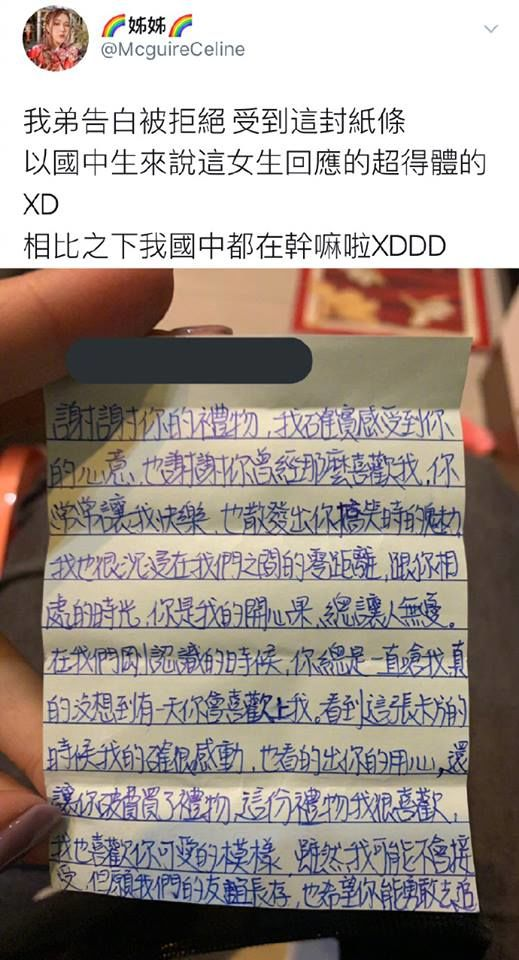 🌈姊姊🌈
@McguireCeline
我弟告白被拒絕 受到這封紙條
以國中生來說這女生回應的超得體的
XD
相比之下我國中都在幹嘛啦XDDD
謝謝你的禮物，我確實感受到你
的心意，也謝謝你曾經那麼喜歡我，你
常常讓我快樂，也散發出你搞笑時的魅力
我也很沉浸在我們之間的零距離，跟你相
處的時光，你是我的開心果，總讓人無憂。
在我們剛認識的時候，你總是一直嗆我，真
的沒想到有一天你會喜歡上我。看到這張卡片的
時候我的確很感動，也看的出你的用心，還
讓你破費買了禮物，這份禮物我很喜歡，
我也喜歡你可愛的模樣，雖然我可能不會接
受，但願我們的友誼長存，也希望你能勇敢去追